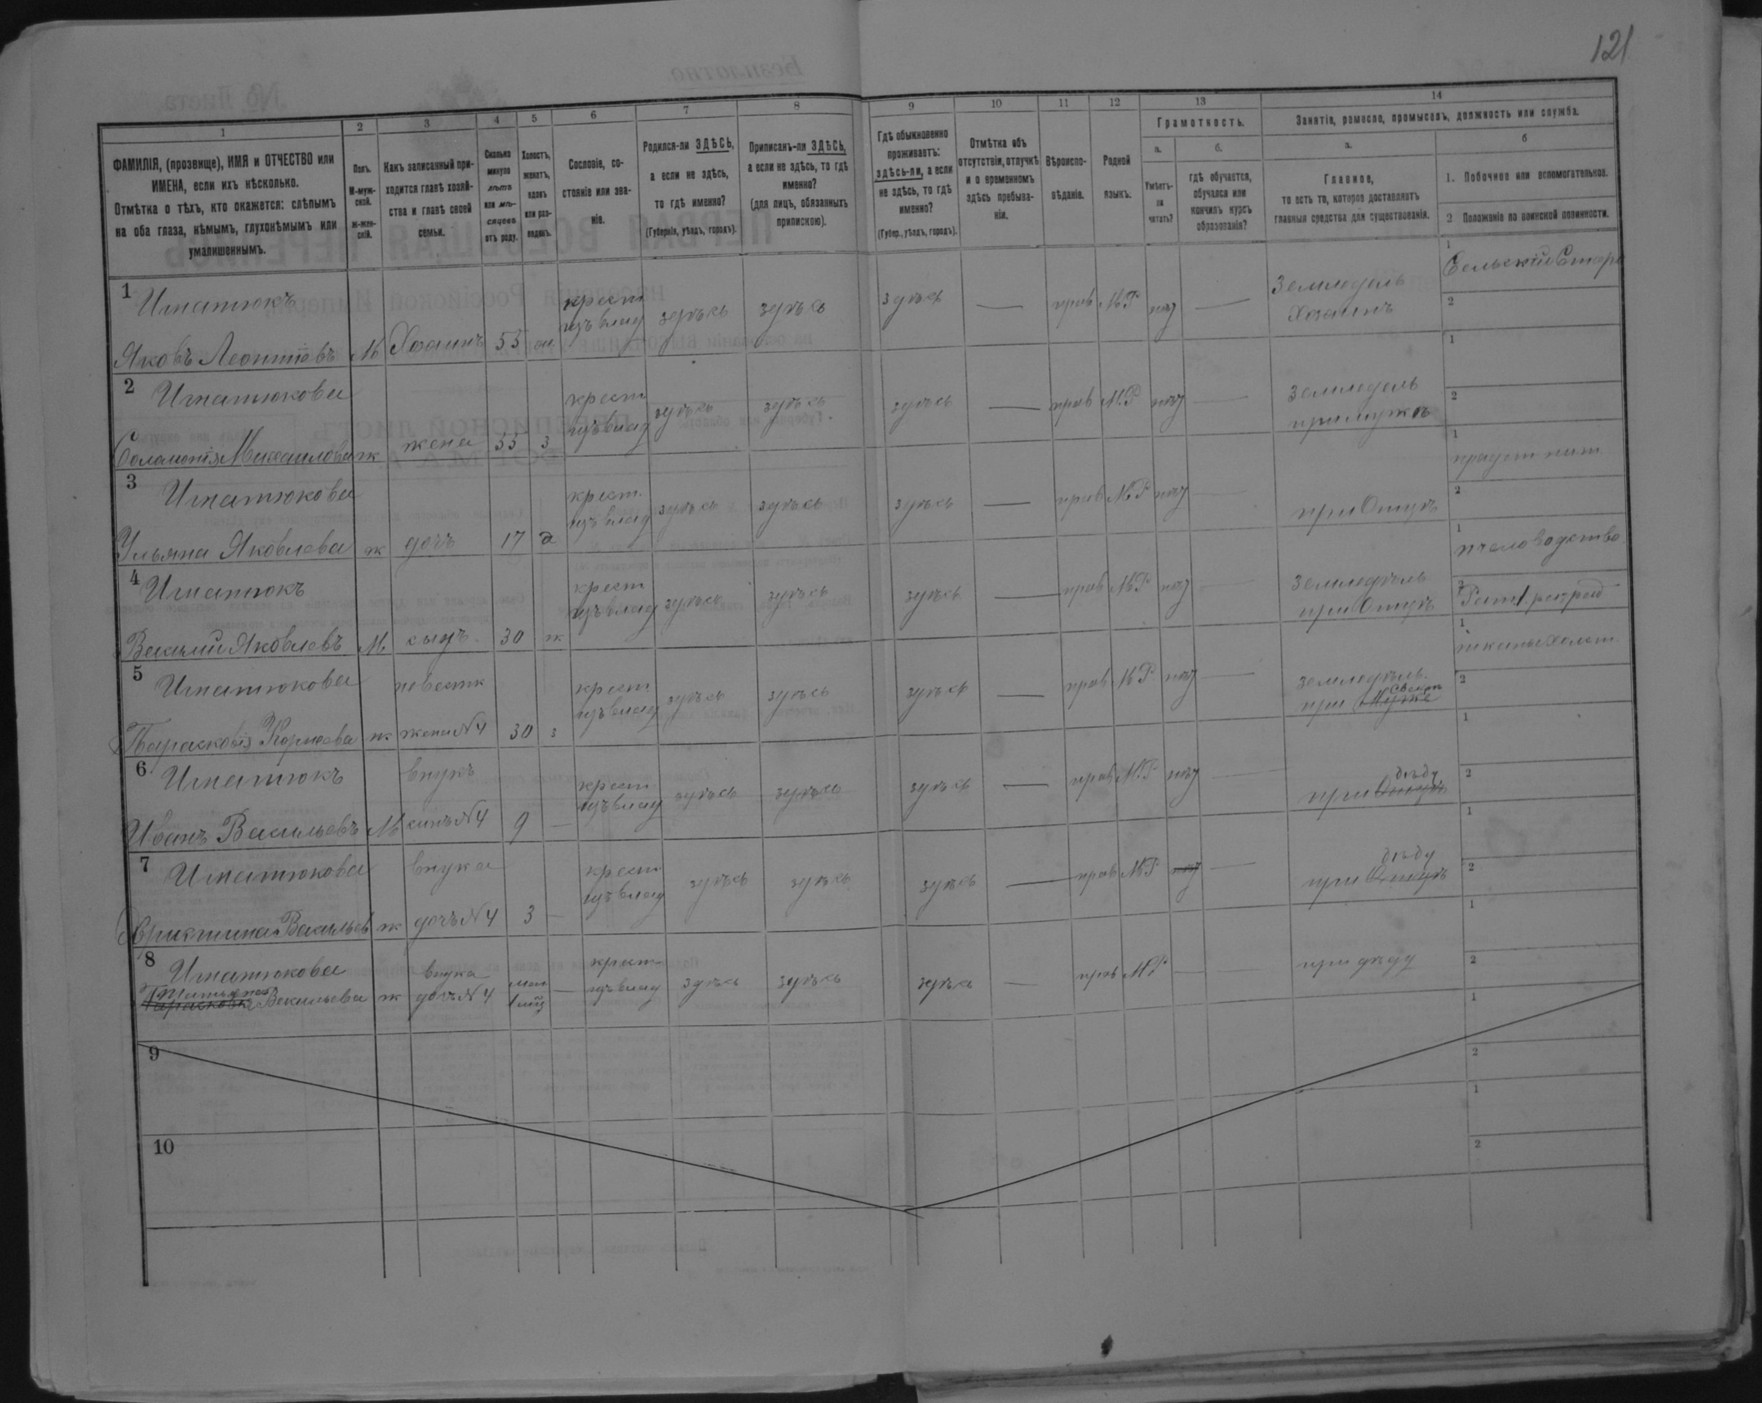 121
1 2 3 4 5 6 7 8 9 10 11 12 13 14
ФАМИЛІЯ, (прозвище), ИМЯ и ОТЧЕСТВО или
ИМЕНА, если ихъ нѣсколько.
Отмѣтка о тѣхъ, кто окажется: слѣпымъ
на оба глаза, нѣмымъ, глухонѣмымъ или
умалишеннымъ.
Полъ.
М-муж-
ской.
Ж-жен-
скій.
Какъ записанный при-
ходится главѣ хозяй-
ства и главѣ своей
семьи.
Сколько
минуло
лѣтъ
или мѣ-
сяцевъ
отъ роду.
Холостъ,
женатъ,
вдовъ
или раз-
веденъ.
Сословіе, со-
стояніе или зва-
ніе.
Родился-ли ЗДѢСЬ,
а если не здѣсь,
то гдѣ именно?
(Губернія, уѣздъ, городъ).
Приписанъ-ли ЗДѢСЬ,
а если не здѣсь, то гдѣ
именно?
(для лицъ, обязанныхъ
припискою).
Гдѣ обыкновенно
проживаетъ:
здѣсь-ли, а если
не здѣсь, то гдѣ
именно?
(Губер., уѣздъ, городъ).
Отмѣтка объ
отсутствіи, отлучкѣ
и о временномъ
здѣсь пребыва-
ніи.
Вѣроиспо-
вѣданіе.
Родной
языкъ.
Грамотность.
а.
Умѣетъ-
ли
читать?
б.
гдѣ обучается,
обучался или
кончилъ курсъ
образованія?
Занятіе, ремесло, промыселъ, должность или служба.
а.
Главное,
то есть то, которое доставляетъ
главныя средства для существованія.
б
1. Побочное или вспомогательное.
2. Положеніе по воинской повинности.
1 Игнатюкъ
Яковъ Леонтіевъ М Хозяинъ 55 крест изъ влад здѣсь здѣсь здѣсь — прав М.Р — Земледѣль Хозяинъ
1 Сельскій Старо
2
2 Игнатюкова
Соломонія Михаилова ж жена 55 з крест изъ влад здѣсь здѣсь здѣсь — прав М.Р — земледѣль при мужѣ
1
2
3 Игнатюкова
Ульяна Яковлева ж дочь 17 д крест. изъ влад здѣсь здѣсь здѣсь — прав М.Р — при Отцѣ
1
2
4 Игнатюкъ
Василий Яковлевъ М сынъ 30 ж крест изъ влад здѣсь здѣсь здѣсь — прав М.Р — Земледѣль при Отцѣ
1 пчеловодство
2
5 Игнатюкова невестк
Парасковія ж жена N4 30 з крест изъ влад здѣсь здѣсь здѣсь — прав М.Р — земледѣль. при свекрѣ мужѣ
1
2
6 Игнатюкъ внукъ
Иванъ Васильевъ М сынъ N4 9 — крест изъ влад здѣсь здѣсь здѣсь — прав М.Р — при дѣду Отцѣ
1
2
7 Игнатюкова внука
Христина Васильев ж дочь N4 3 — крест изъ влад здѣсь здѣсь здѣсь — прав М.Р — при дѣду Отцѣ
1
2
8 Игнатюкова внука
Парасковія Васильева ж дочь N4 — крест изъ влад здѣсь здѣсь здѣсь — прав М.Р — — при дѣду
1
2
9
1
2
10
1
2